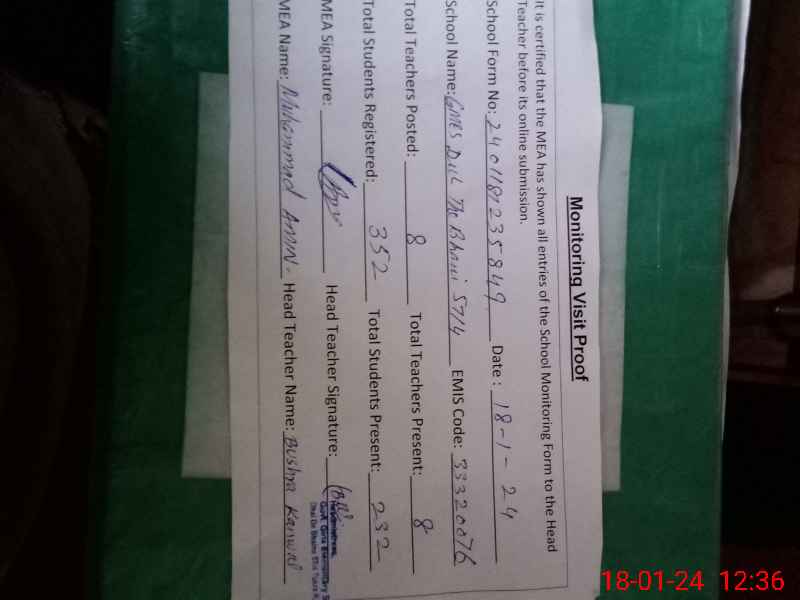 Monitoring Visit Proof
It is certified that the MEA has shown all entries of the School Monitoring Form to the Head
Teacher before its online submission.
School Form No: 240118235849 Date : 18-1-24
School Name: GMES Dhl The Bhani 57/4 EMIS Code: 33320076
Total Teachers Posted: 8 Total Teachers Present: 8
Total Students Registered: 352 Total Students Present: 232
MEA Signature: Head Teacher Signature:
Headmistress
Govt. Girls Elementary S
MEA Name: Muhammad Amin. Head Teacher Name: Bushra Kanwal
18-01-24 12:36